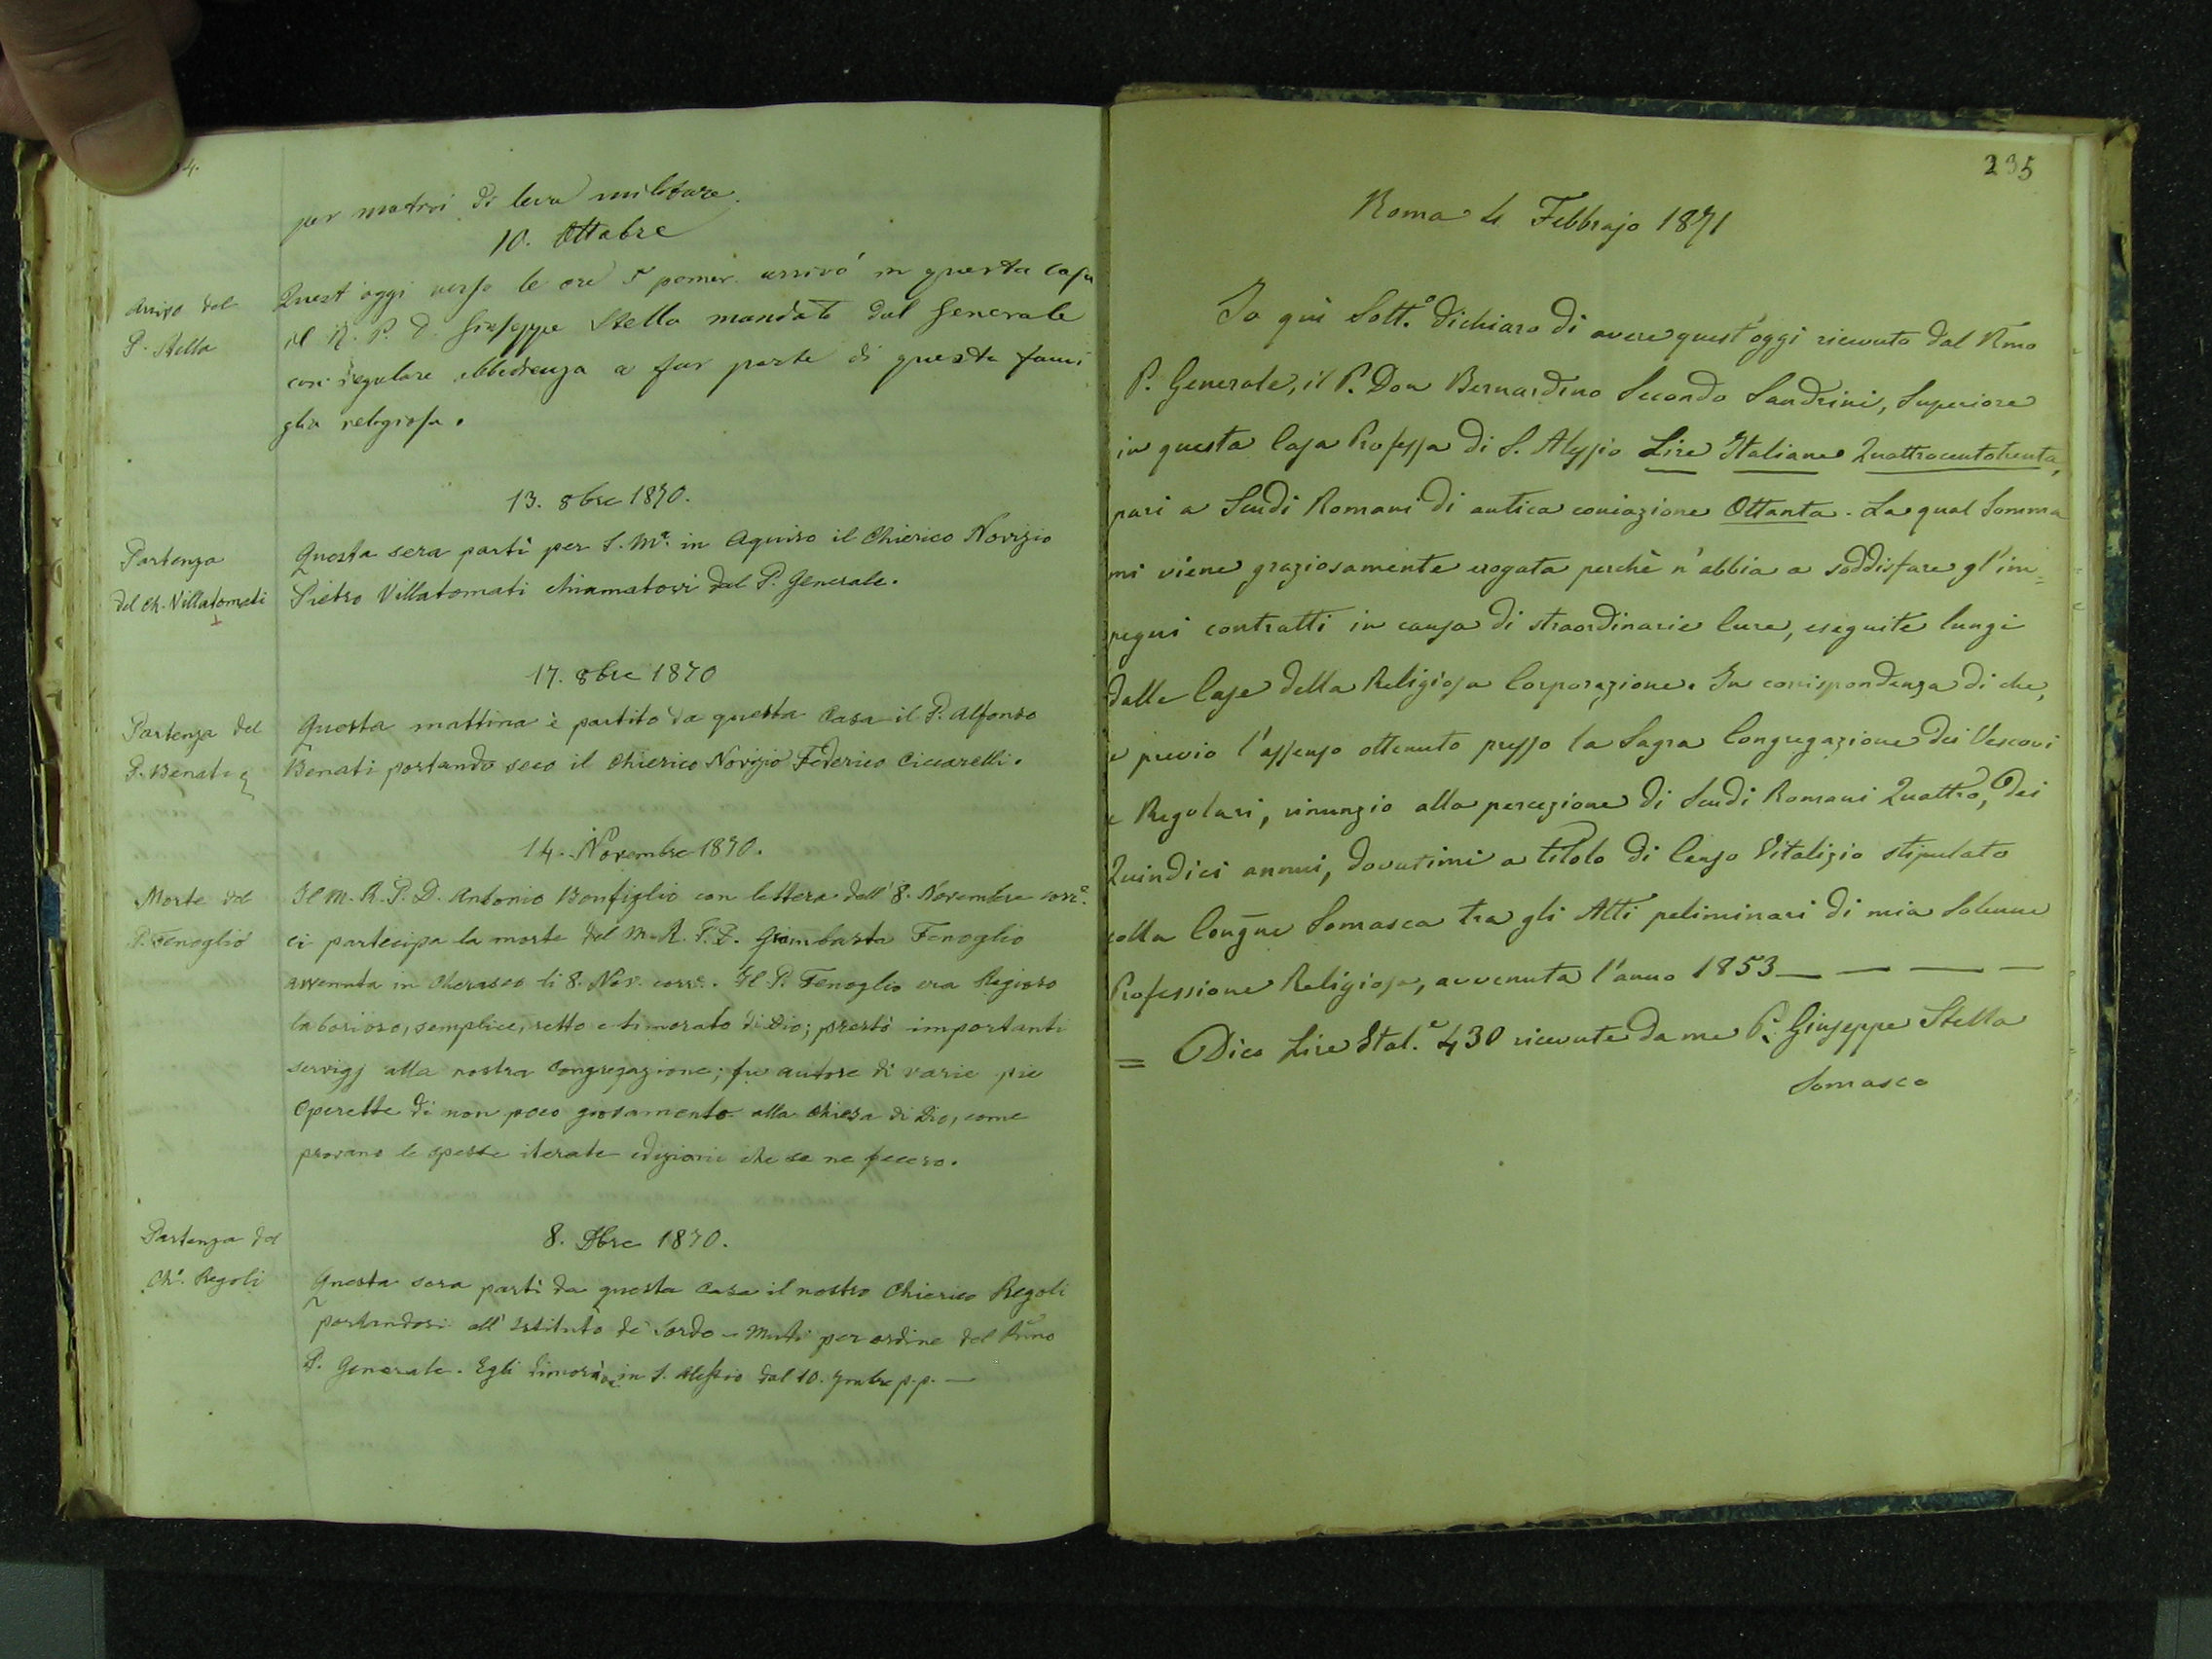 34.
per motivi di leva militare.
10. Ottobre
Arrivo del
P. Stella
Quest'oggi verso le ore 5 pomer. arrivò in questa casa
il R. P. D. Giuseppe Stella mandato dal Generale
con regolare obbedienza a far parte di questa fami
glia religiosa.
13. 8bre 1870.
Partenza
del Ch. Villatomati
Questa sera partì per S. Mª. in Aquiro il Chierico Novizio
Pietro Villatomati chiamatovi dal P. Generale.
17. 8bre 1870
Partenza del
P. Benati
Questa mattina è partito da questa Casa il P. Alfonso
Benati portando seco il Chierico Novizio Federico Ciccarelli.
14. Novembre 1870.
Morte del
P. Fenoglio
Il M. R. P. D. Antonio Bonfiglio con lettera dell'8. Novembre corre.
ci partecipa la morte del M. R. P. D. Giambatta Fenoglio
avvenuta in Cherasco li 8. Nov. corre. Il P. Fenoglio era Religioso
laborioso, semplice, retto e timorato di Dio; prestò importanti
servigj alla nostra Congregazione; fu autore di varie pie
Operette di non poco giovamento alla Chiesa di Dio, come
provano le spesse iterate edizioni che se ne fecero.
8. Xbre 1870.
Partenza del
Ch. Regoli
Questa sera partì da questa Casa il nostro Chierico Regoli
portandosi all'Istituto de' Sordo-Muti per ordine del Rmo
P. Generale. Egli dimorava in S. Alessio dal 10. p.p. —
235
Roma 4 Febbrajo 1871
Io quì Sott.º dichiaro di avere quest'oggi ricevuto dal Rmo
P. Generale, il P. Don Bernardino Secondo Sandrini, Superiore
in questa Casa Professa di S. Alessio Lire Italiane Quattrocentotrenta,
pari a Scudi Romani di antica coniazione Ottanta. La qual Somma
mi viene graziosamente erogata perchè n'abbia a soddisfare gl'im=
pegni contratti in causa di straordinarie Cure, eseguite lungi
dalle Case della Religiosa Corporazione. In corrispondenza di che,
e previo l'assenso ottenuto presso la Sagra Congregazione dei Vescovi
e Regolari, rinunzio alla percezione di Scudi Romani Quattro, dei
Quindici annui, dovutimi a titolo di Censo Vitalizio stipulato
colla Congne Somasca tra gli Atti peliminari di mia Solenne
Professione Religiosa, avvenuta l'anno 1853 — — — —
= Dico Lire Ital.e 430 ricevute da me P. Giuseppe Stella
Somasco